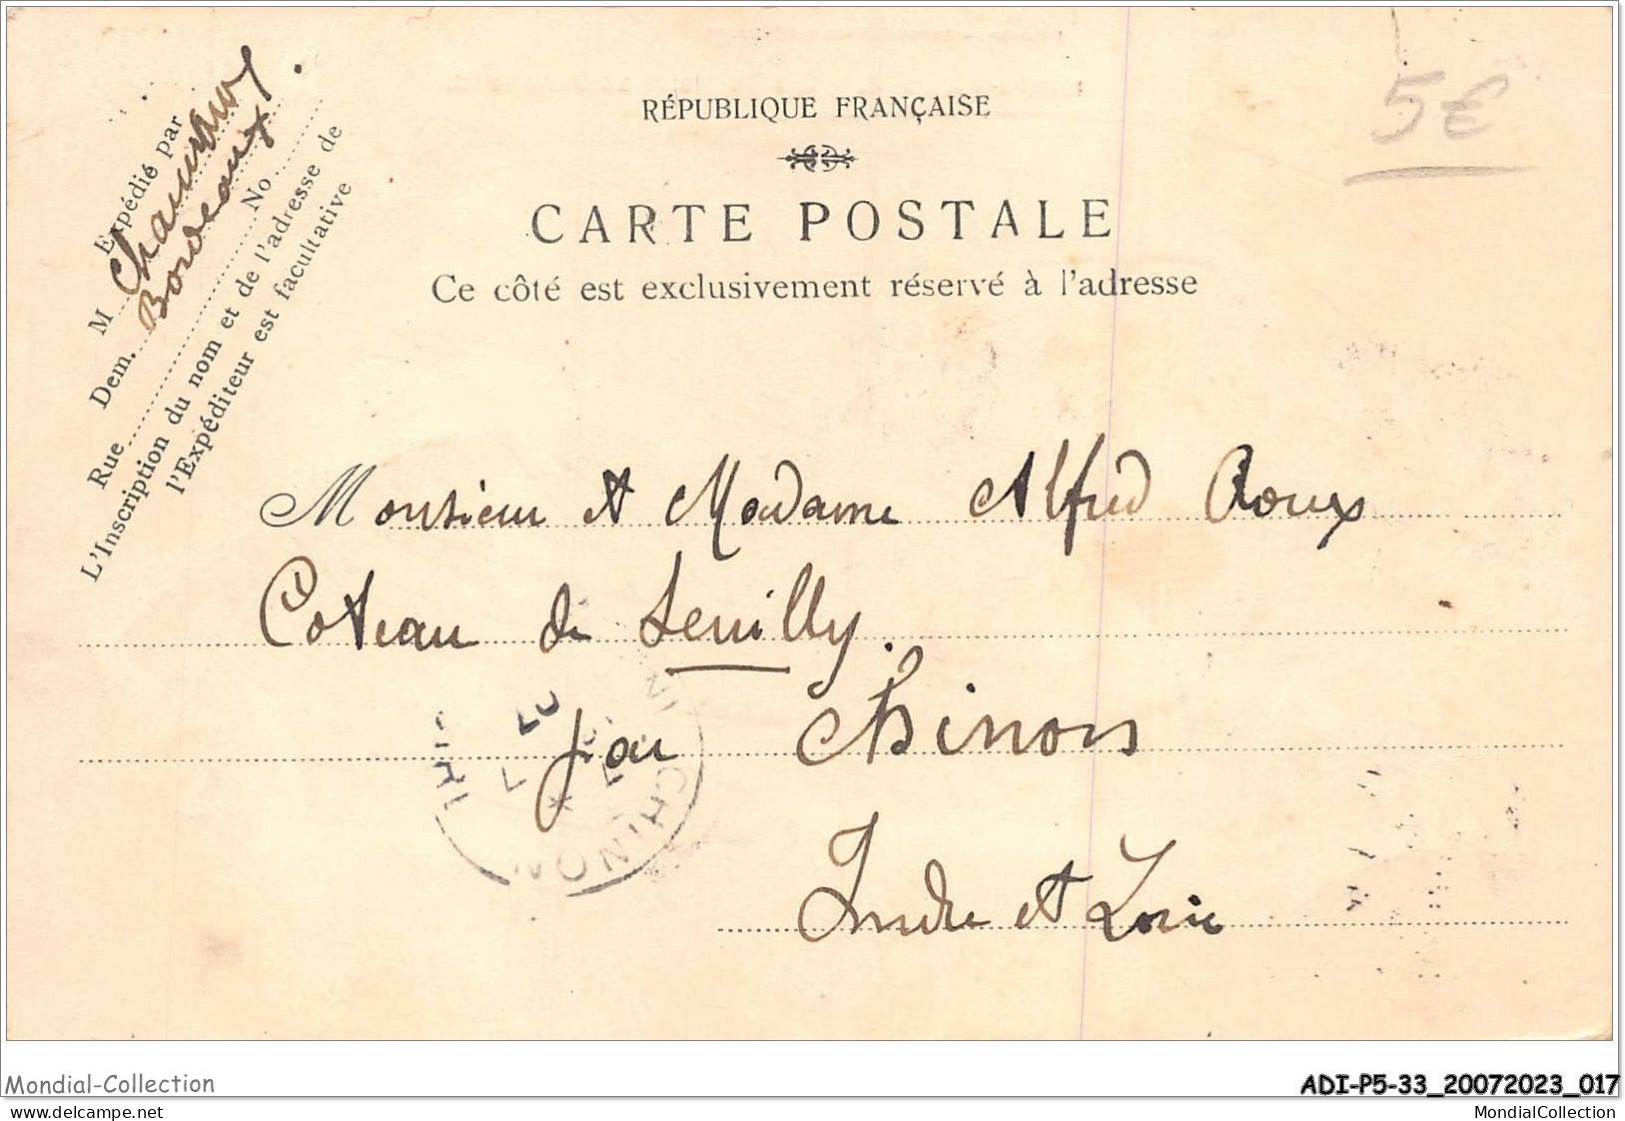 RÉPUBLIQUE FRANÇAISE
5€
CARTE POSTALE
Ce côté est exclusivement réservé à l'adresse
Expédié par
M
Dem. Bordeaux
Rue No
L'Inscription du nom et de l'adresse de
l'Expéditeur est facultative
Monsieur et Madame Alfred Roux
Coteau de Seuilly.
par Chinon
Indre et Loire
CHINON
Mondial-Collection
ADI-P5-33_20072023_017
delcampe.net
MondialCollection